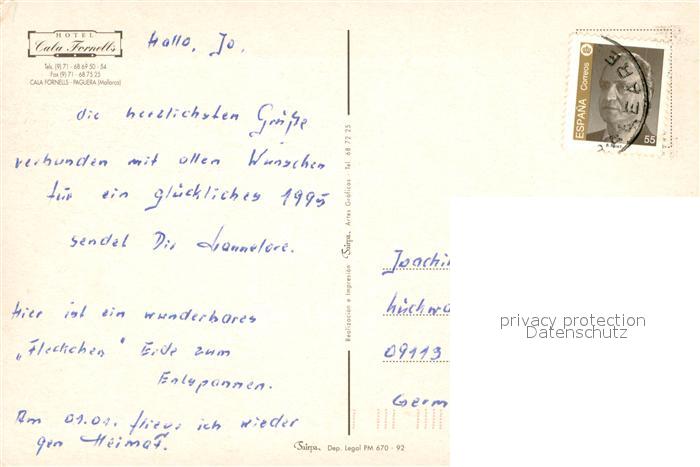 HOTEL
Cala Fornells
Tels. (9) 71 - 68 69 50 - 54
Fax (9) 71 - 68 75 25
CALA FORNELLS - PAGUERA (Mallorca)
Hallo, Jo.
die herzlichsten Grüße
verbunden mit allen Wünschen
für ein glückliches 1995
sendet Dir Hannelore.
Hier ist ein wunderbares
„Fleckchen" Erde zum
Entspannen.
Am 01.01. fliege ich wieder
gen Heimat.
Realización e Impresión Sairpa. Artes Gráficas - Tel. 28 72 25
Sairpa. Dep. Legal PM 670 - 92
ESPAÑA
Correos
55
Joachi
09113
Germ
privacy protection
Datenschutz